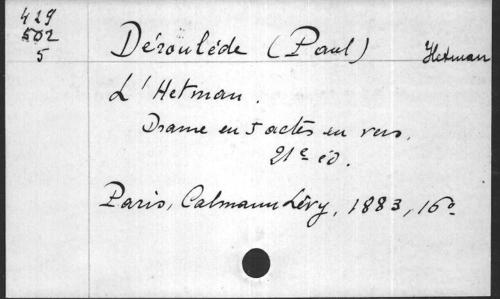 429
502
5
Déroulède (Paul)
Hetman
L'Hetman.
Drame en 5 actes en vers.
21e éd.
Paris, Calmann Lévy, 1883, 16o.